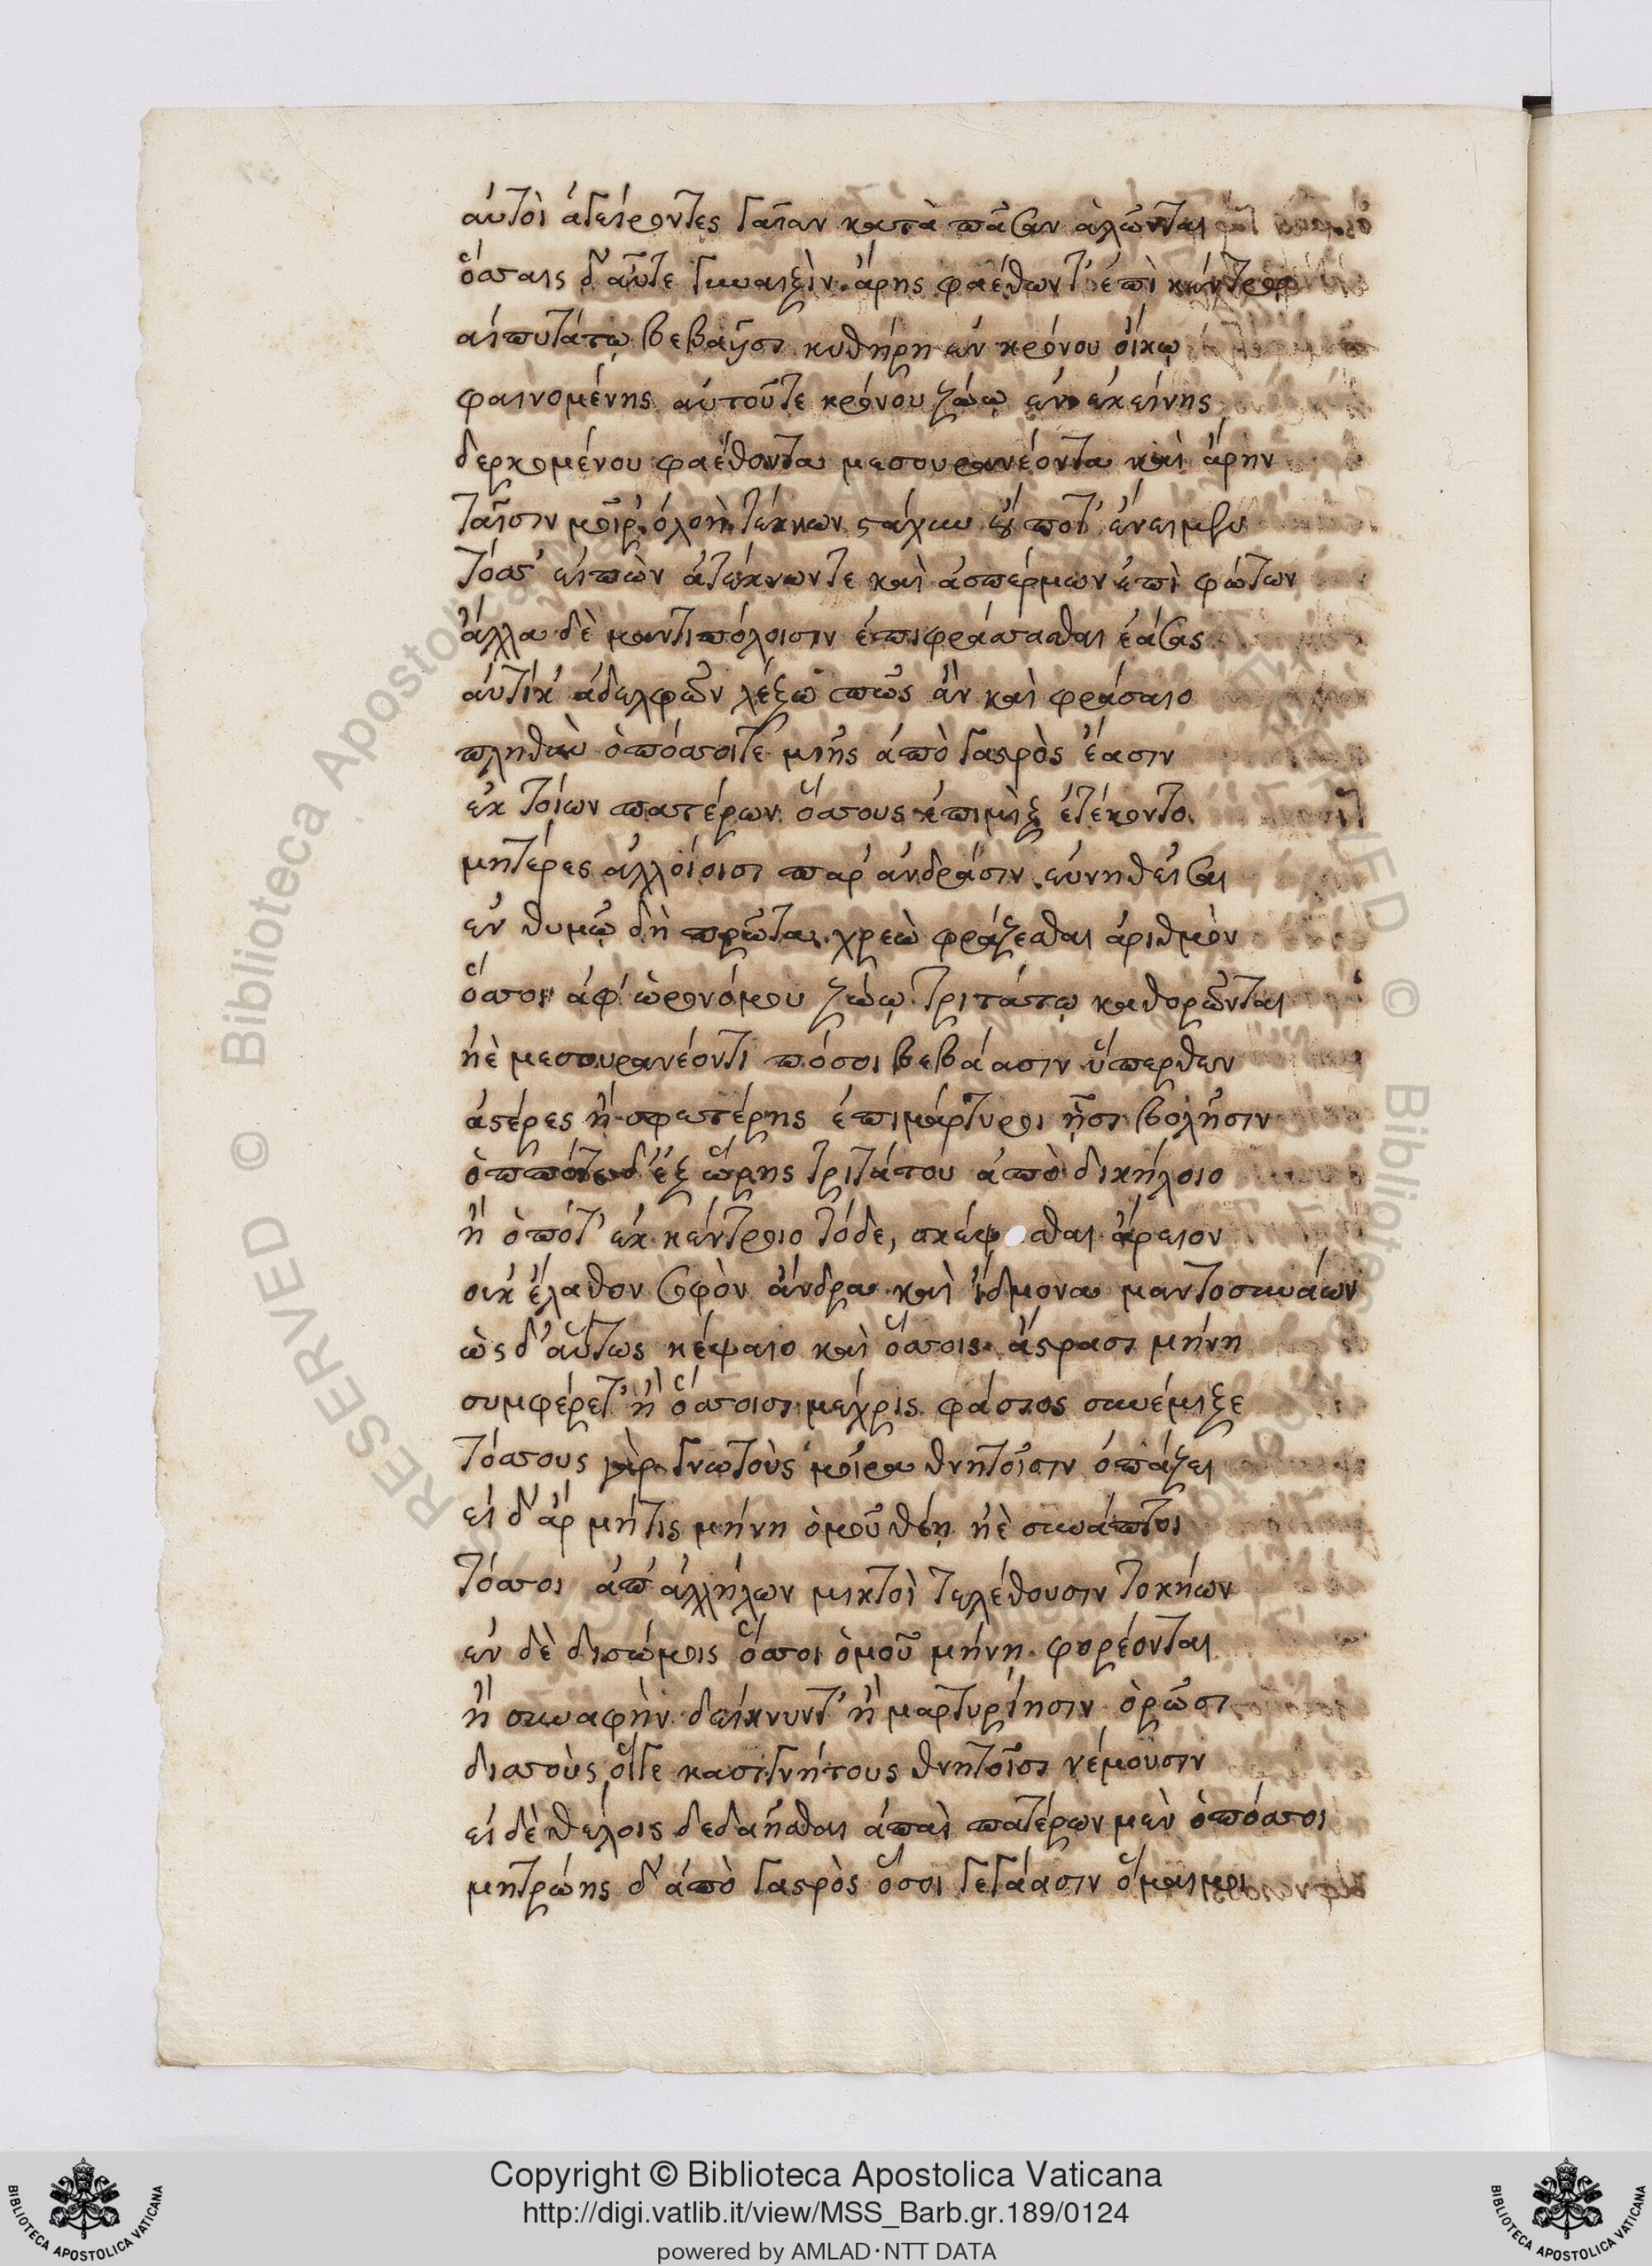 αὐτοὶ ἀγείροντες γαῖαν κατὰ πᾶσαν ἀλῶνται
ὅσσαις δ' αὖτε γυναιξὶν ἄρης φαέθων τ' ἐπὶ κέντρῳ
αἰπυτάτῳ βεβαῶσι κυθήρη ἐν κρόνου οἴκῳ
φαινομένης αὐτοῦτε κρόνου ζώῳ ἐν ἐκείνης
δερκομένου φαέθοντα μεσουρανέοντα καὶ ἄρην
ταῖσιν μοῖρ' ὀλοὴ τέκνων στάχυν οὔ ποτ' ἔνειμεν
τόσσ' εἰπὼν ἀτέκνωντε καὶ ἀσπέρμων ἐπὶ φώτων
ἄλλα δὲ μαντιπόλοισιν ἐπιφράσασθαι ἐάσας
αὐτίκ' ἀδελφῶν λέξω πῶς ἂν καὶ φράσαιο
πληθὺν ὁπόσσοιτε μιῆς ἀπὸ γαστρὸς ἔασιν
ἐκ τοίων πατέρων ὅσσους ἐπιμὶξ ἐτέκοντο
μητέρες ἀλλοίοισι παρ' ἀνδράσιν εὐνηθεῖσαι
ἐν θυμῷ δὴ πρῶτα χρεὼ φράζεσθαι ἀριθμὸν
ὅσσοι ἀφ' ὡρονόμου ζώῳ τριτάτῳ καθορῶνται
ἠὲ μεσουρανέοντι πόσοι βεβάασιν ὕπερθεν
ἀστέρες ἢ σφετέρης ἐπιμάρτυροι ᾖσι βολῇσιν
ὁππότε δ' ἐξ ὥρης τριτάτου ἀπὸ δικήλοιο
ἢ ὁπότ' ἐκ κέντροιο τόδε, σκέψασθαι ἄρειον
οὐκ ἔλαθον σοφὸν ἄνδρα καὶ ἴδμονα μαντοσυνάων
ὡς δ' αὔτως κέψαιο καὶ ὅσσοις ἄστρασι μήνη
συμφέρετ' ἢ ὅσσοισι μέχρις φάσιος συνέμιξε
τόσσους γὰρ γνωτοὺς μοῖρα θνητοῖσιν ὀπάζει
εἰ δ' ἄρ μήτις μήνη ὁμοῦ θέῃ ἠὲ συνάπτοι
τόσσοι ἀπ' ἀλλήλων μικτοὶ τελέθουσιν τοκήων
ἐν δὲ δισώμοις ὅσσοι ὁμοῦ μήνῃ φορέονται
ἢ συναφὴν δείκνυντ' ἢ μαρτυρίῃσιν ὁρῶσι
δισσοὺς οἵγε κασιγνήτους θνητοῖσι νέμουσιν
εἰ δὲ θέλοις δεδαῆσθαι ἀπαὶ πατέρων μὲν ὁπόσσοι
μητρώης δ' ἀπὸ γαστρὸς ὅσοι γεγάασιν ὅμαιμοι
Copyright © Biblioteca Apostolica Vaticana
http://digi.vatlib.it/view/MSS_Barb.gr.189/0124
powered by AMLAD·NTT DATA